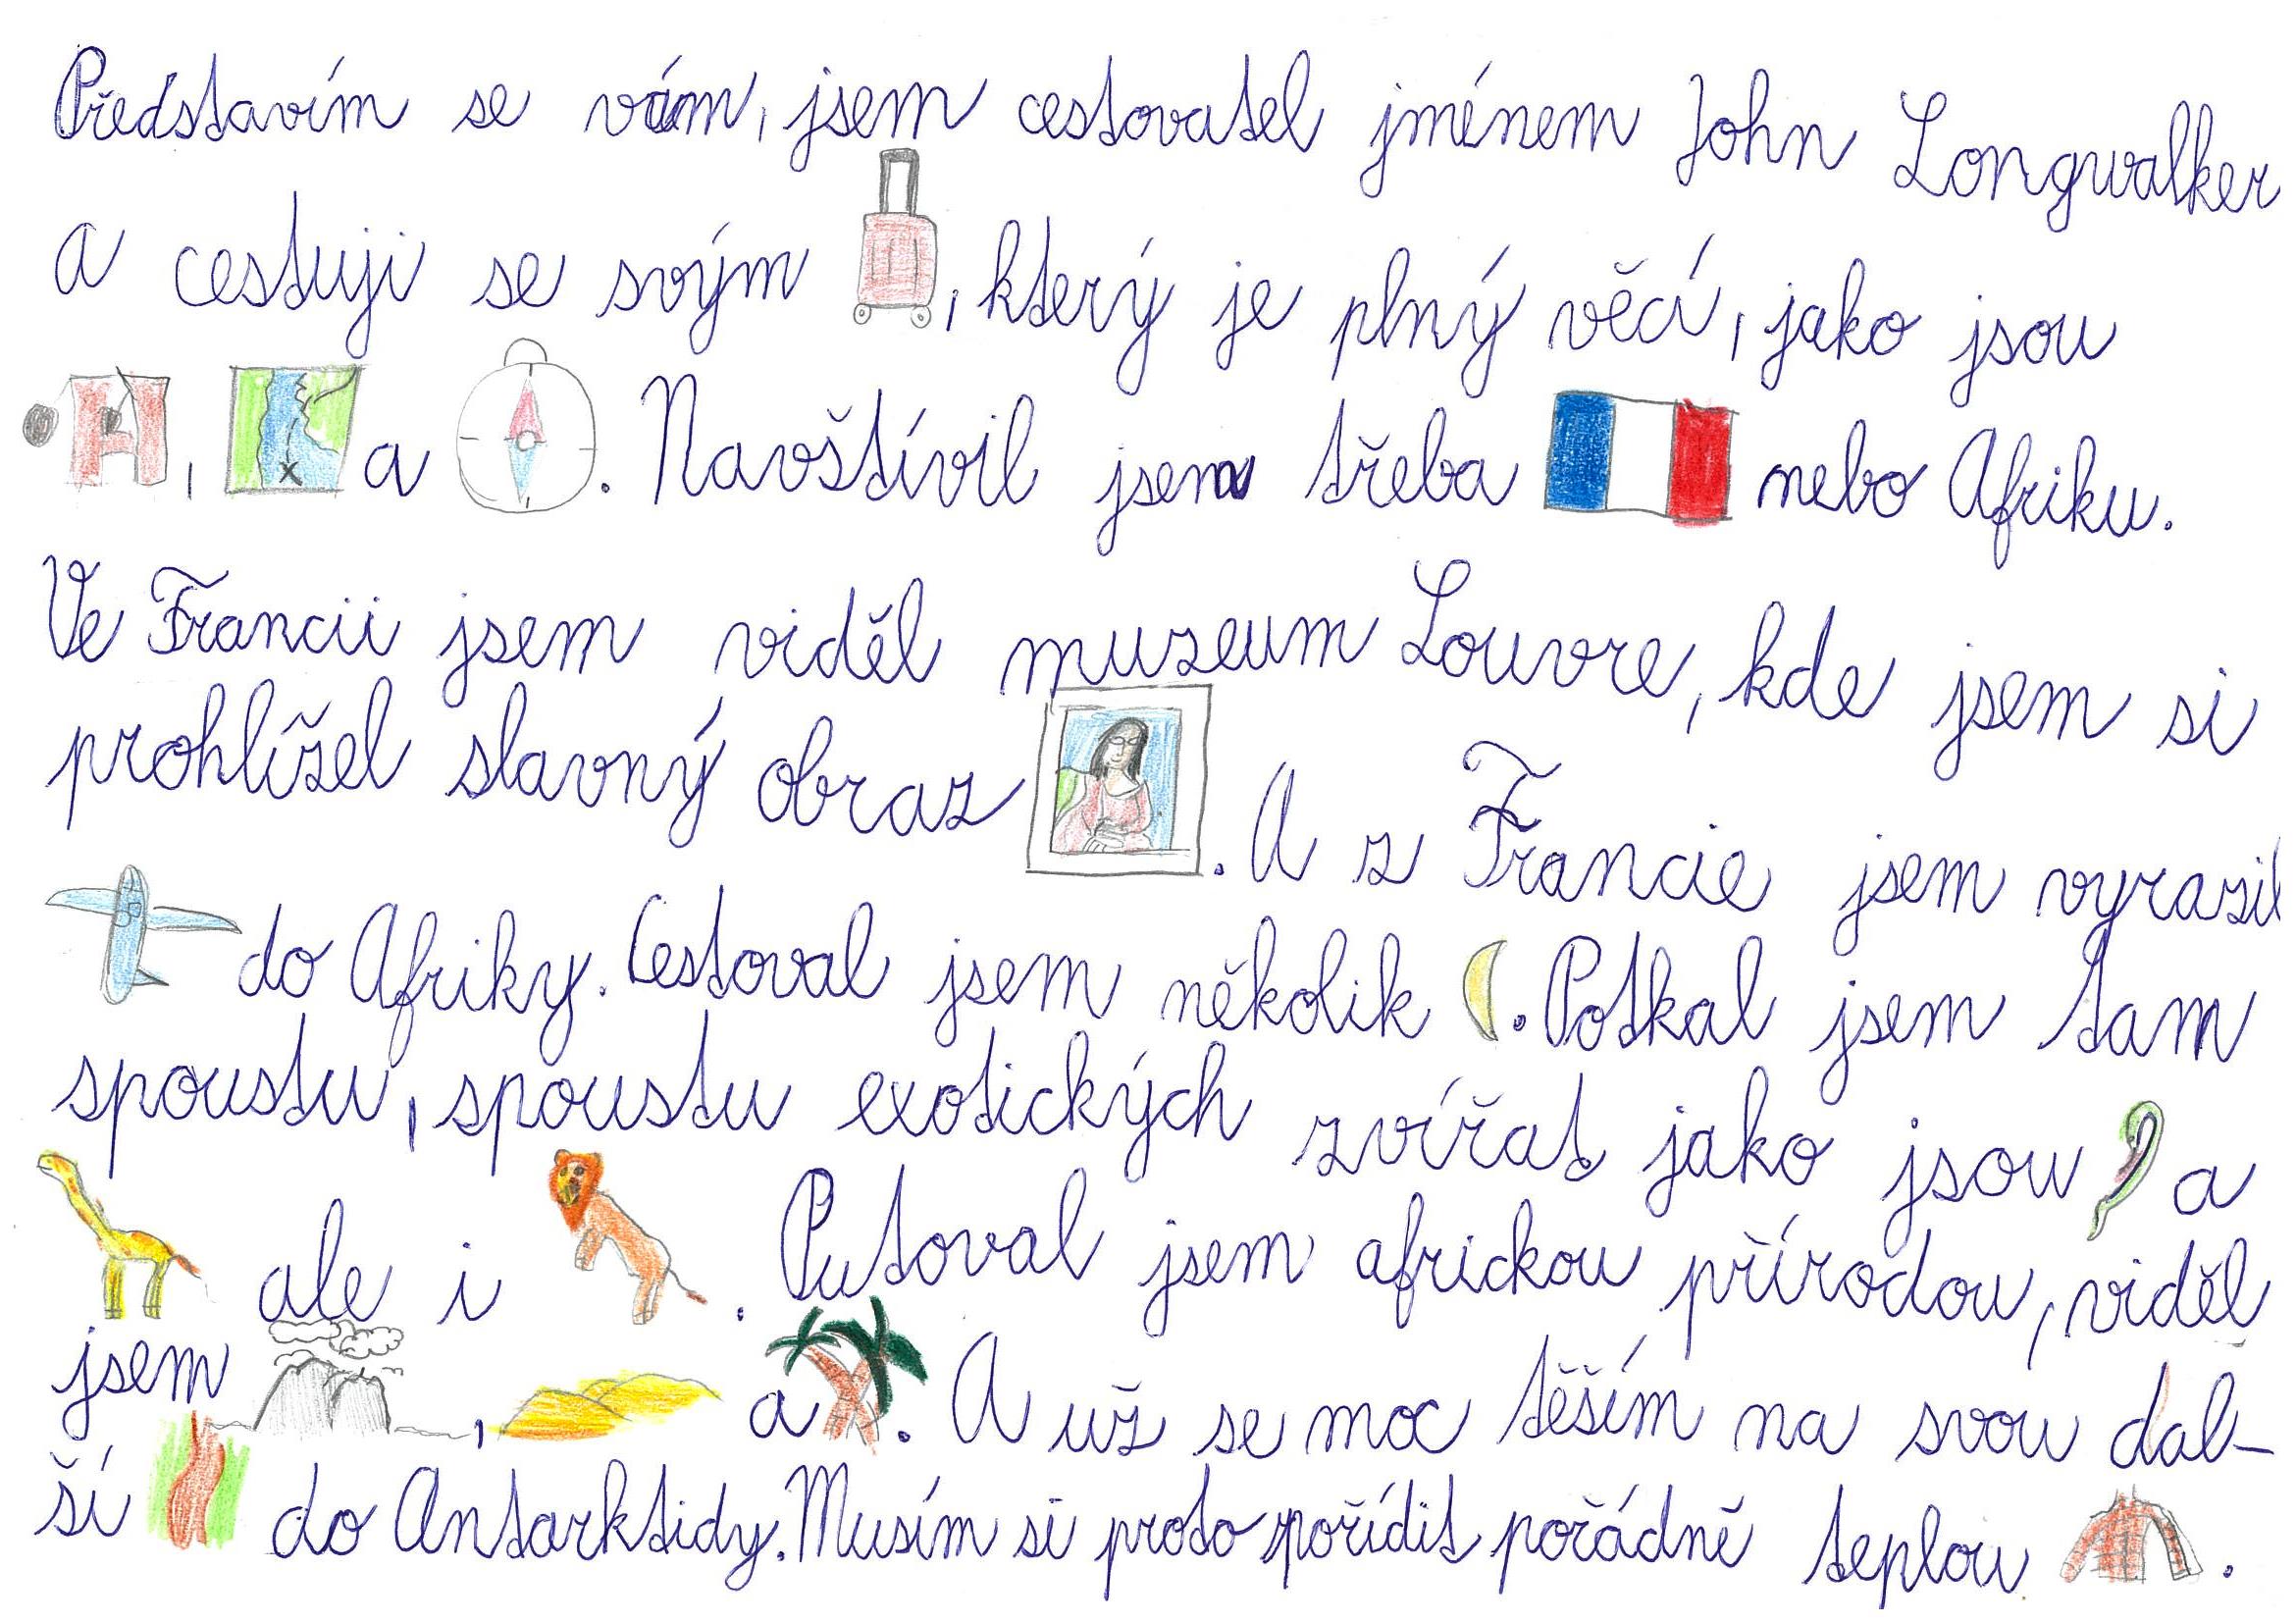 Představím se vám, jsem cestovatel jménem John Longwalker
a cestuji se svým , který je plný věcí, jako jsou
, a . Navštívil jsem třeba nebo Afriku.
Ve Francii jsem viděl muzeum Louvre, kde jsem si
prohlížel slavný obraz . A z Francie jsem vyrazil
do Afriky. Cestoval jsem několik . Potkal jsem tam
spoustu, spoustu exotických zvířat jako jsou a
ale i . Putoval jsem africkou přírodou, viděl
jsem , a . A už se moc těším na svou dal-
ší do Antarktidy. Musím si proto pořídit pořádně teplou .